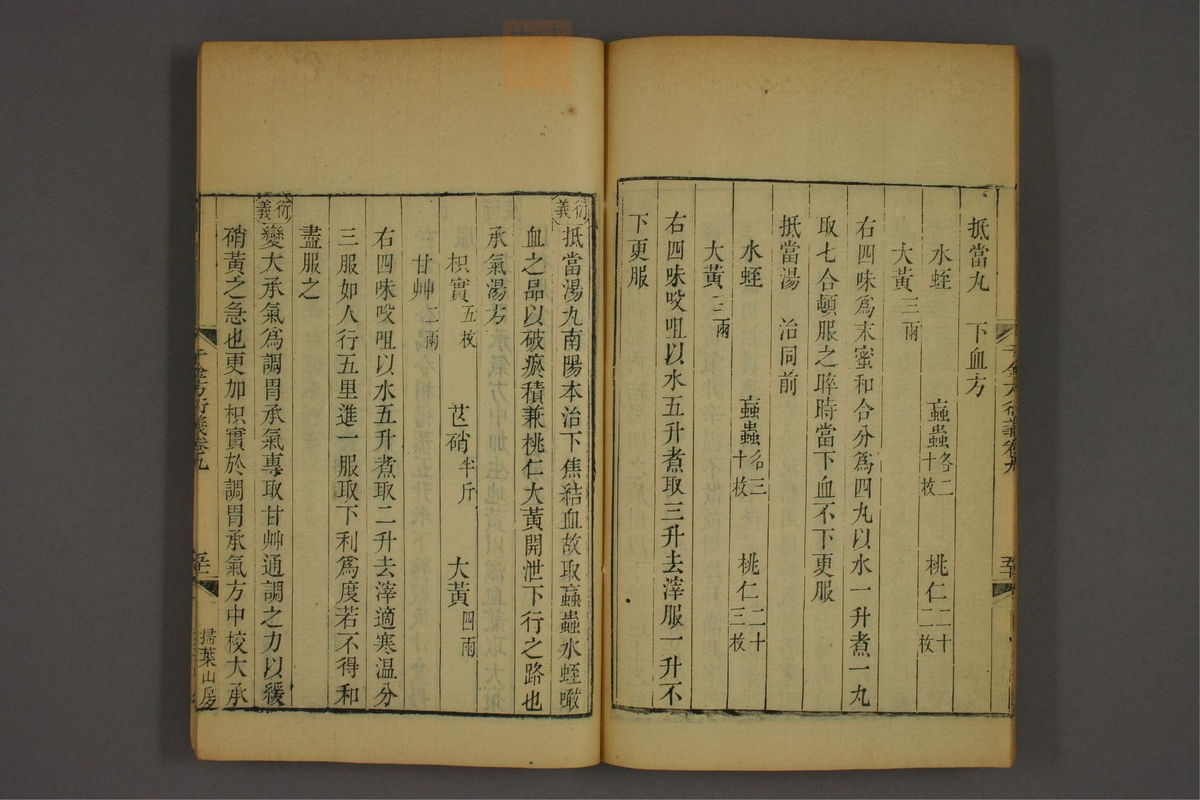 抵當丸　下血方
水蛭　䖟蟲各二十枚　桃仁二十二枚
大黃三兩
右四味爲末蜜和合分爲四丸以水一升煮一丸
取七合頓服之晬時當下血不下更服
抵當湯　治同前
水蛭　䖟蟲各三十枚　桃仁二十三枚
大黃三兩
右四味㕮咀以水五升煮取三升去滓服一升不
下更服
衍義抵當湯九南陽本治下焦結血故取䖟蟲水蛭噉
血之品以破瘀積兼桃仁大黃開泄下行之路也
承氣湯方
枳實五枚　芒硝半斤　大黃四兩
甘艸二兩
右四味㕮咀以水五升煮取二升去滓適寒温分
三服如人行五里進一服取下利爲度若不得和
盡服之
衍義變大承氣爲調胃承氣專取甘艸通調之力以緩
硝黃之急也更加枳實於調胃承氣方中校大承
千金方衍義卷九
掃葉山房